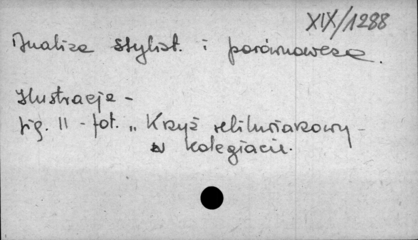 XIX/1288
Analiza stylist. i porównawcza.
Ilustracje -
fig. 11 - fot. „Krzyż relikwiarzowy -
w kolegiacie.